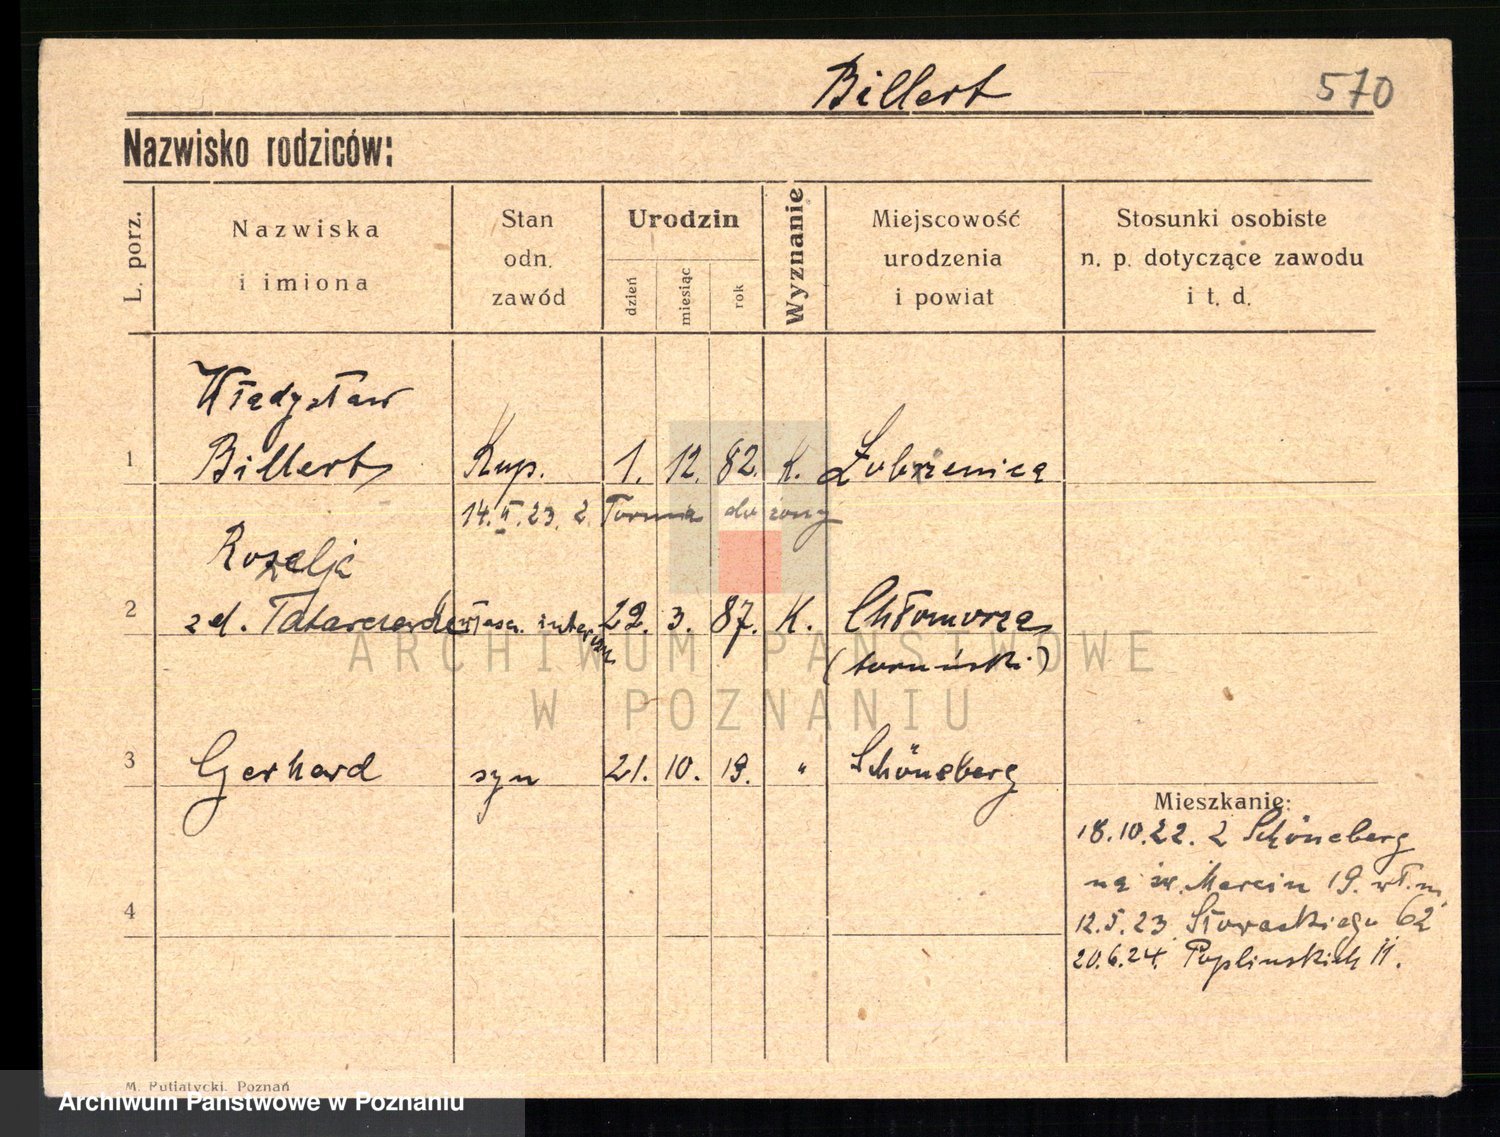 Billert
570
Nazwisko rodziców:
L. porz.
Nazwiska
i imiona
Stan
odn.
zawód
Urodzin
dzień
miesiąc
rok
Wyznanie
Miejscowość
urodzenia
i powiat
Stosunki osobiste
n. p. dotyczące zawodu
i t. d.
Władysław
1 Billert Kup. 1. 12. 82. K. Łobżenica
14. 23. z Torunia do żony
Rozalja
2 zd. 22. 3. 87. K.
(toruński)
3 Gerhard syn 21. 10. 19. " Schöneberg
Mieszkanie:
18.10.22. z Schöneberg
na św. Marcin 19.
4
12.5.23 Słowackiego 62
20.6.24. Poplinskich 11.
M. Putiatycki. Poznań
ARCHIWUM PAŃSTWOWE
W POZNANIU
Archiwum Państwowe w Poznaniu